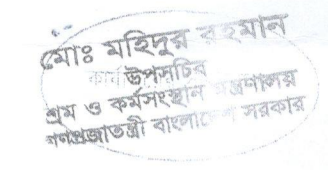 মোঃ মহিদুর রহমান
উপসচিব
শ্রম ও কর্মসংস্থান মন্ত্রণালয়
গণপ্রজাতন্ত্রী বাংলাদেশ সরকার